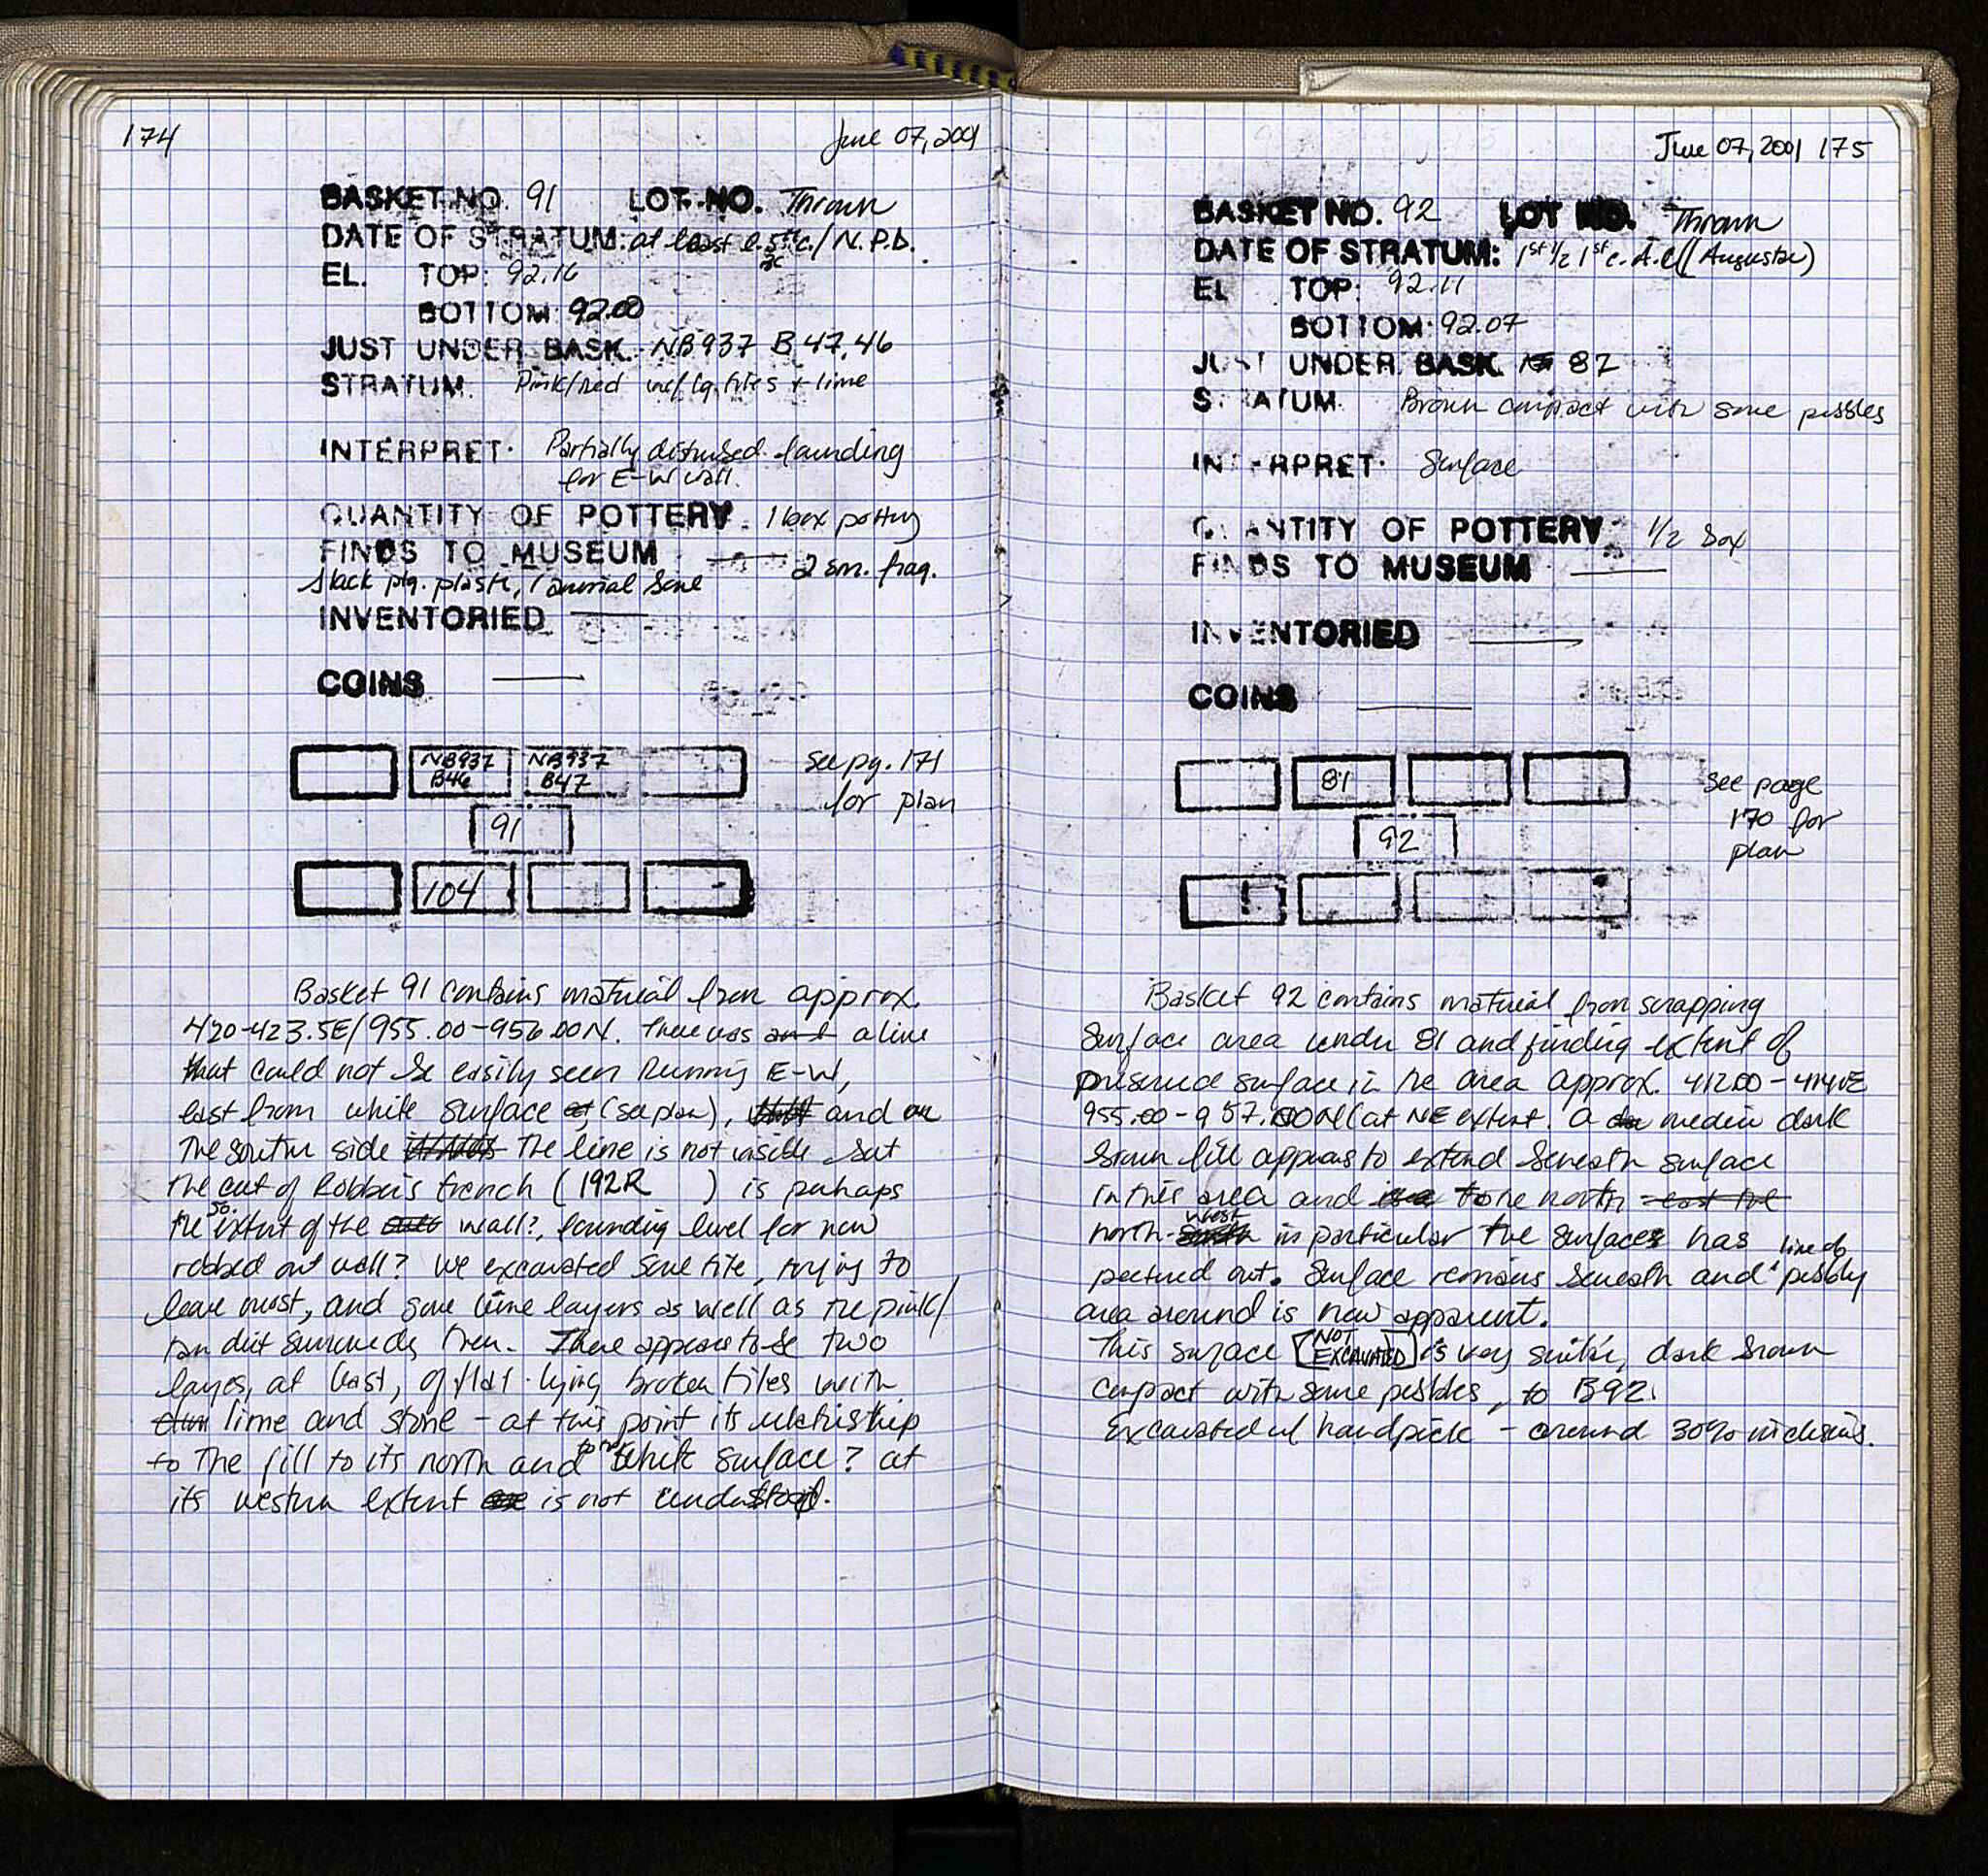 174 June 07, 2001
BASKET NO. 91 LOT NO. Thrown
DATE OF STRATUM: at least l. 5th c. / N.P.D.
BC
EL. TOP: 92.16
BOTTOM: 92.00
JUST UNDER BASK. NB937 B 47, 46
STRATUM. Pink/red w/ lg. tiles + lime
INTERPRET. Partially disturbed founding
for E-W wall.
QUANTITY OF POTTERY. 1 box pottery
FINDS TO MUSEUM — 2 sm. frag.
black pig. plaster, 1 animal bone
INVENTORIED —
COINS —
NB937 B46
NB937 B47
91
104
see pg. 171
for plan
Basket 91 contains material from approx.
420-423.5E/955.00-956.00N. There was a line
that could not be easily seen running E-W,
east from white surface (see plan), and on
the south side the line is not visible but
the cut of Robber's trench (192R ) is perhaps
the extent of the so. wall?, founding level for now
robbed out wall? We excavated some tile, trying to
leave most, and some lime layers as well as the pink/
tan dirt surrounding them. There appears to be two
layers, at least, of flat-lying broken tiles with
lime and stone - at this point its relationship
to the fill to its north and to the white surface? at
its western extent is not understood.
June 07, 2001 175
BASKET NO. 92 LOT NO. Thrown
DATE OF STRATUM: 1st 1/2 1st c. A.C. (Augustan)
EL TOP: 92.11
BOTTOM: 92.07
JUST UNDER BASK. 82
STRATUM Brown compact with some pebbles
INTERPRET. Surface
QUANTITY OF POTTERY 1/2 box
FINDS TO MUSEUM —
INVENTORIED —
COINS —
81
92
see page
170 for
plan
Basket 92 contains material from scrapping
surface area under 81 and finding extent of
preserved surface in the area approx. 412.00-414.00E
955.00-957.00N (at NE extent. A medium dark
brown fill appears to extend beneath surface
in this area and to the north
north-west in particular the surface has
petered out. Surface remains beneath and pebbly
area around is now apparent.
This surface [NOT EXCAVATED] is very similar, dark brown
compact with some pebbles, to B92.
Excavated w/ handpick - around 30% inclusions.